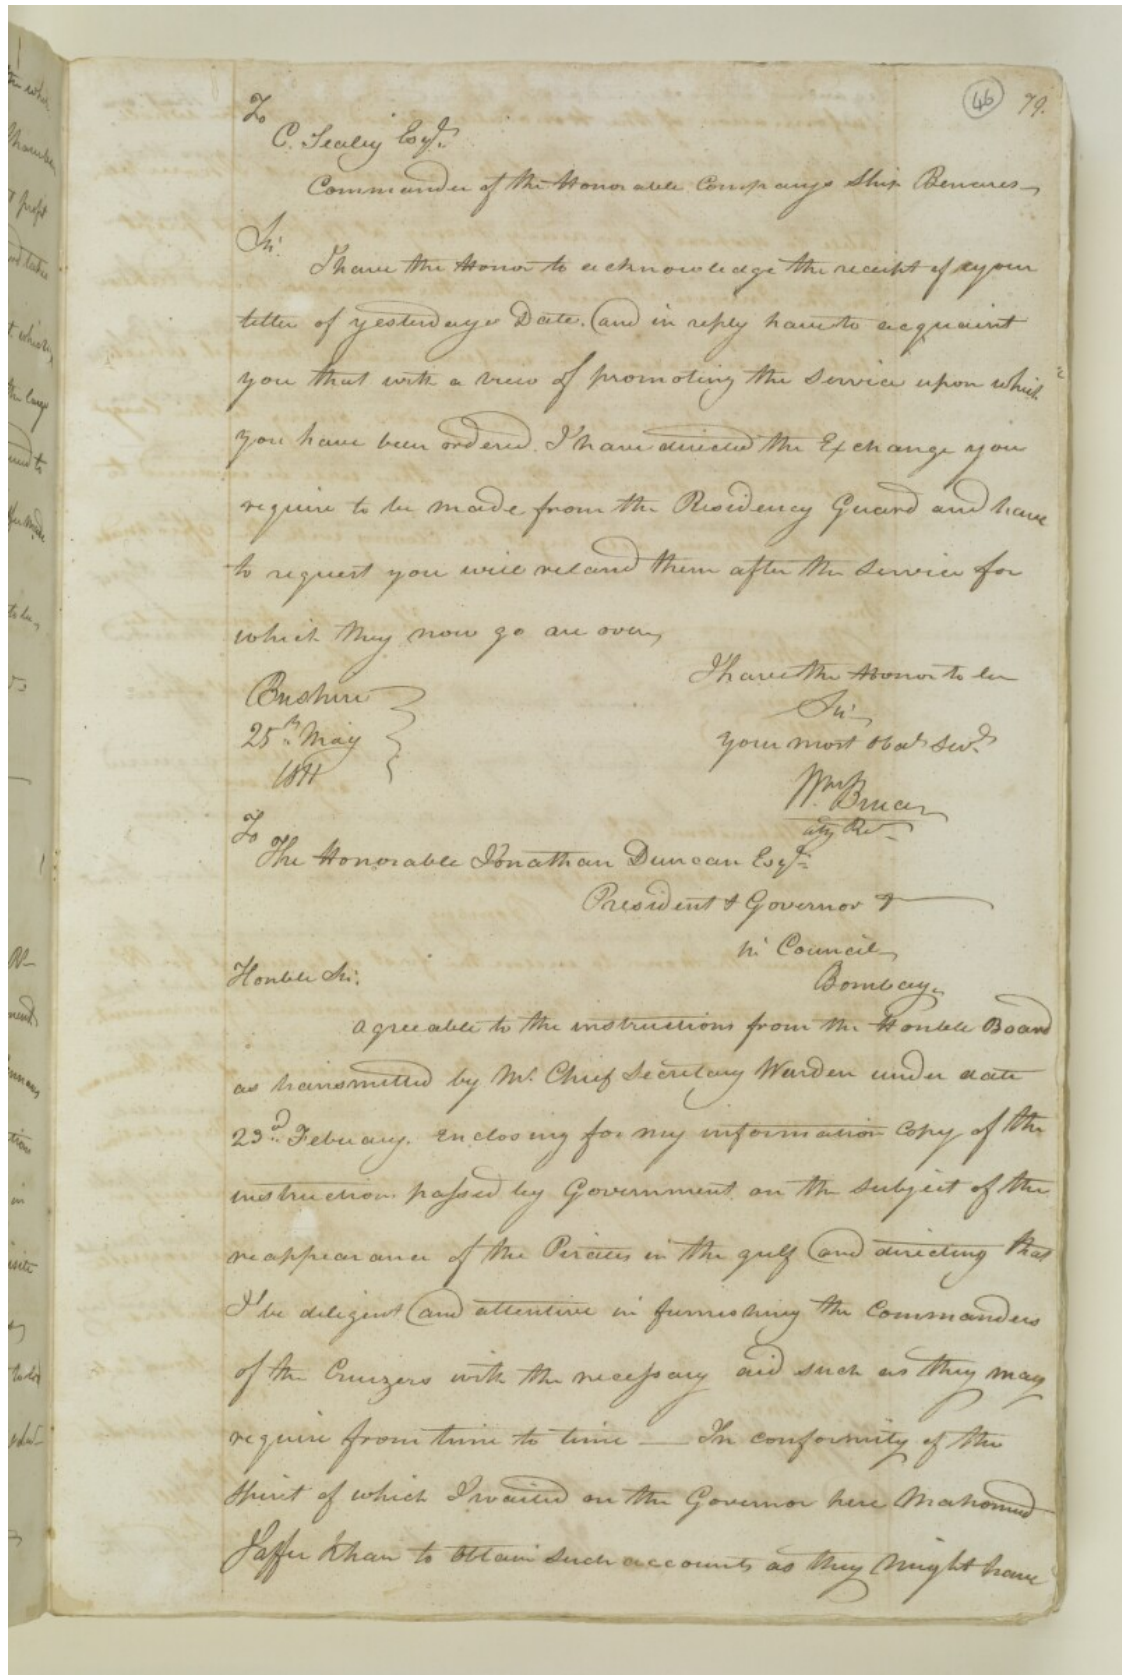 46 79.
To
C. Sealy Esqr.
Commander of the Honorable Companys Ship Benares
Sir.
I have the Honor to acknowledge the receipt of your
letter of yesterdays Date. and in reply have to acquaint
you that with a view of promoting the Service upon which
you have been ordered. I have directed the Exchange you
require to be made from the Residency Guard and have
to request you will reland them after the Service for
which they now go are over,
I have the Honor to be
Bushire
Sir
25th May
your most Obdt. Servt.
1811
Wm. Bruce
actg. Rest.
To
The Honorable Jonathan Duncan Esqr.
President & Governor &
in Council
Honble Sir.
Bombay.
agreeable to the instructions from the Honble Board
as transmitted by Mr. Chief Secretary Warden under date
23d. Febuary. Enclosing for my information Copy of the
instruction passed by Government on the Subject of the
reappearance of the Pirates in the gulf and directing that
I be diligent and attentive in furnishing the Commanders
of the Cruizers with the necessary aid such as they may
require from time to time — In conformity of the
Spirit of which I waited on the Governor here Mahomed
Jaffer Khan to Obtain Such accounts as they might have